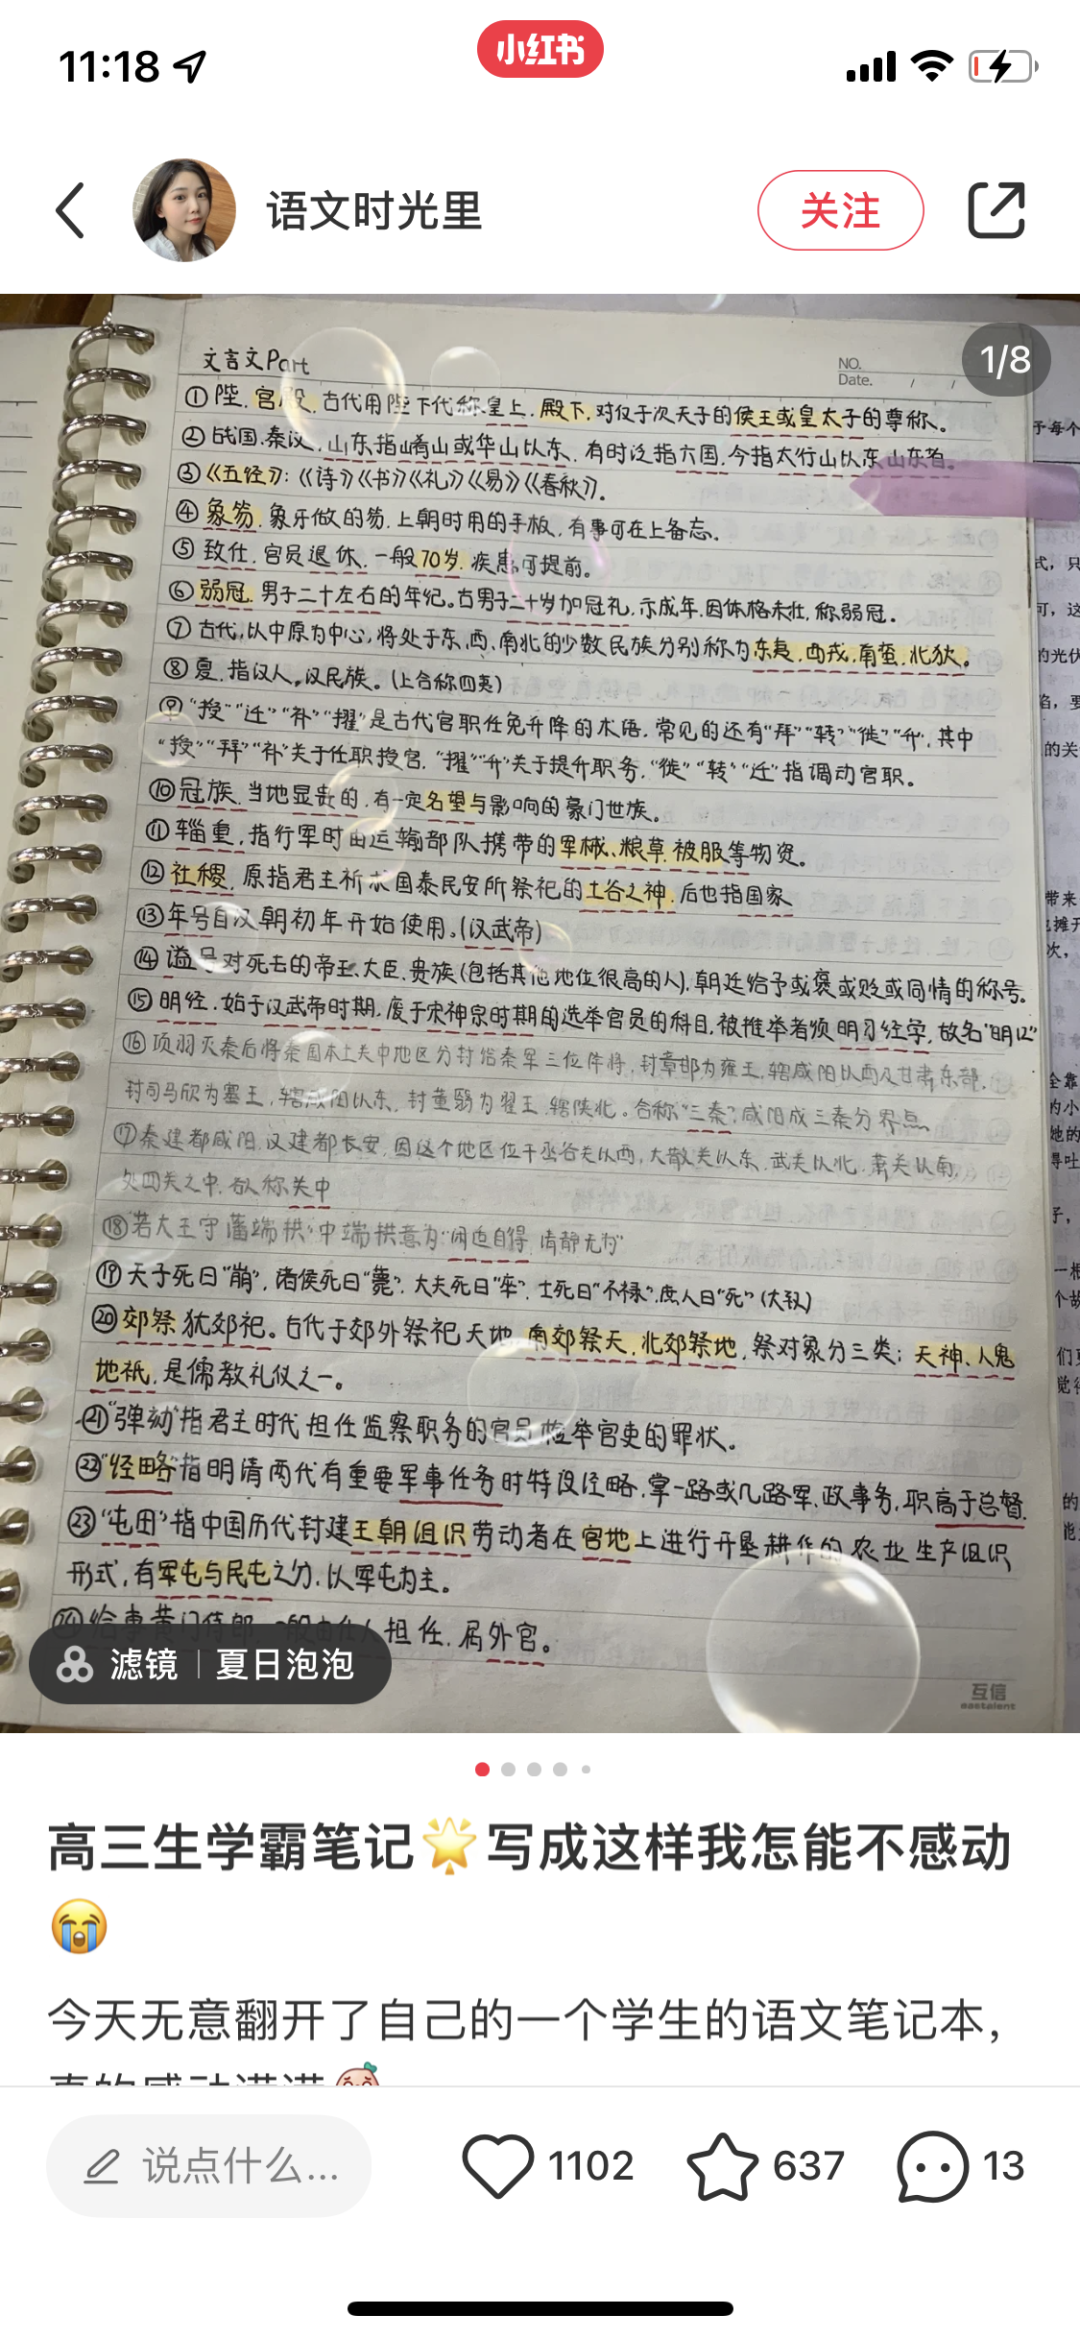 11:18
小红书
语文时光里
关注
1/8
文言文Part
NO.
Date. / /
①陛,宫殿,古代用陛下代称皇上,殿下,对仅于次天子的侯王或皇太子的尊称。
②战国.秦汉,山东指崤山或华山以东,有时泛指六国,今指太行山以东山东省。
③《五经》:《诗》《书》《礼》《易》《春秋》。
④象笏,象牙做的笏,上朝时用的手板,有事可在上备忘。
⑤致仕,官员退休,一般70岁,疾患可提前。
⑥弱冠,男子二十左右的年纪。古男子二十岁加冠礼,示成年,因体格未壮,称弱冠。
⑦古代,以中原为中心,将处于东,西,南北的少数民族分别称为东夷,西戎,南蛮,北狄。
⑧夏,指汉人,汉民族。(上合称四夷)
⑨"授""迁""补""擢"是古代官职任免升降的术语,常见的还有"拜""转""徙""升",其中
"授""拜""补"关于任职授官,"擢""升"关于提升职务,"徙""转""迁"指调动官职。
⑩冠族,当地显贵的,有一定名望与影响的豪门世族。
⑪辎重,指行军时由运输部队携带的军械、粮草,被服等物资。
⑫社稷,原指君主祈求国泰民安所祭祀的土谷之神,后也指国家
⑬年号自汉朝初年开始使用。(汉武帝)
⑭谥号对死去的帝王、大臣,贵族(包括其他地位很高的人),朝廷给予或褒或贬或同情的称号。
⑮明经,始于汉武帝时期,废于宋神宗时期的选举官员的科目,被推举者须明习经学,故名"明经"
⑯项羽灭秦后将秦国本土关中地区分封给秦军三位降将,封章邯为雍王,辖咸阳以西及甘肃东部,
封司马欣为塞王,辖咸阳以东,封董翳为翟王,辖陕北。合称"三秦",咸阳成三秦分界点
⑰秦建都咸阳,汉建都长安,因这个地区位于函谷关以西,大散关以东,武关以北,萧关以南,
处四关之中,故称关中
⑱"若大王守藩端拱"中端拱意为"闲适自得,清静无为"
⑲天子死曰"崩",诸侯死曰"薨",大夫死曰"卒",士死曰"不禄",庶人曰"死"
⑳郊祭犹郊祀。古代于郊外祭祀天地,南郊祭天,北郊祭地,祭对象分三类:天神、人鬼
地祇,是儒教礼仪之一。
㉑"弹劾"指君主时代担任监察职务的官员检举官吏的罪状。
㉒"经略"指明清两代有重要军事任务时特设经略,掌一路或几路军,政事务,职高于总督.
㉓"屯田"指中国历代封建王朝组织劳动者在官地上进行开垦耕作的农业生产组织
形式,有军屯与民屯之分,以军屯为主。
㉔给事黄门侍郎 一般由仕人担任,属外官。
互信
eastalent
滤镜 | 夏日泡泡
高三生学霸笔记🌟写成这样我怎能不感动
😭
今天无意翻开了自己的一个学生的语文笔记本,
真的感动满满
说点什么...
1102
637
13